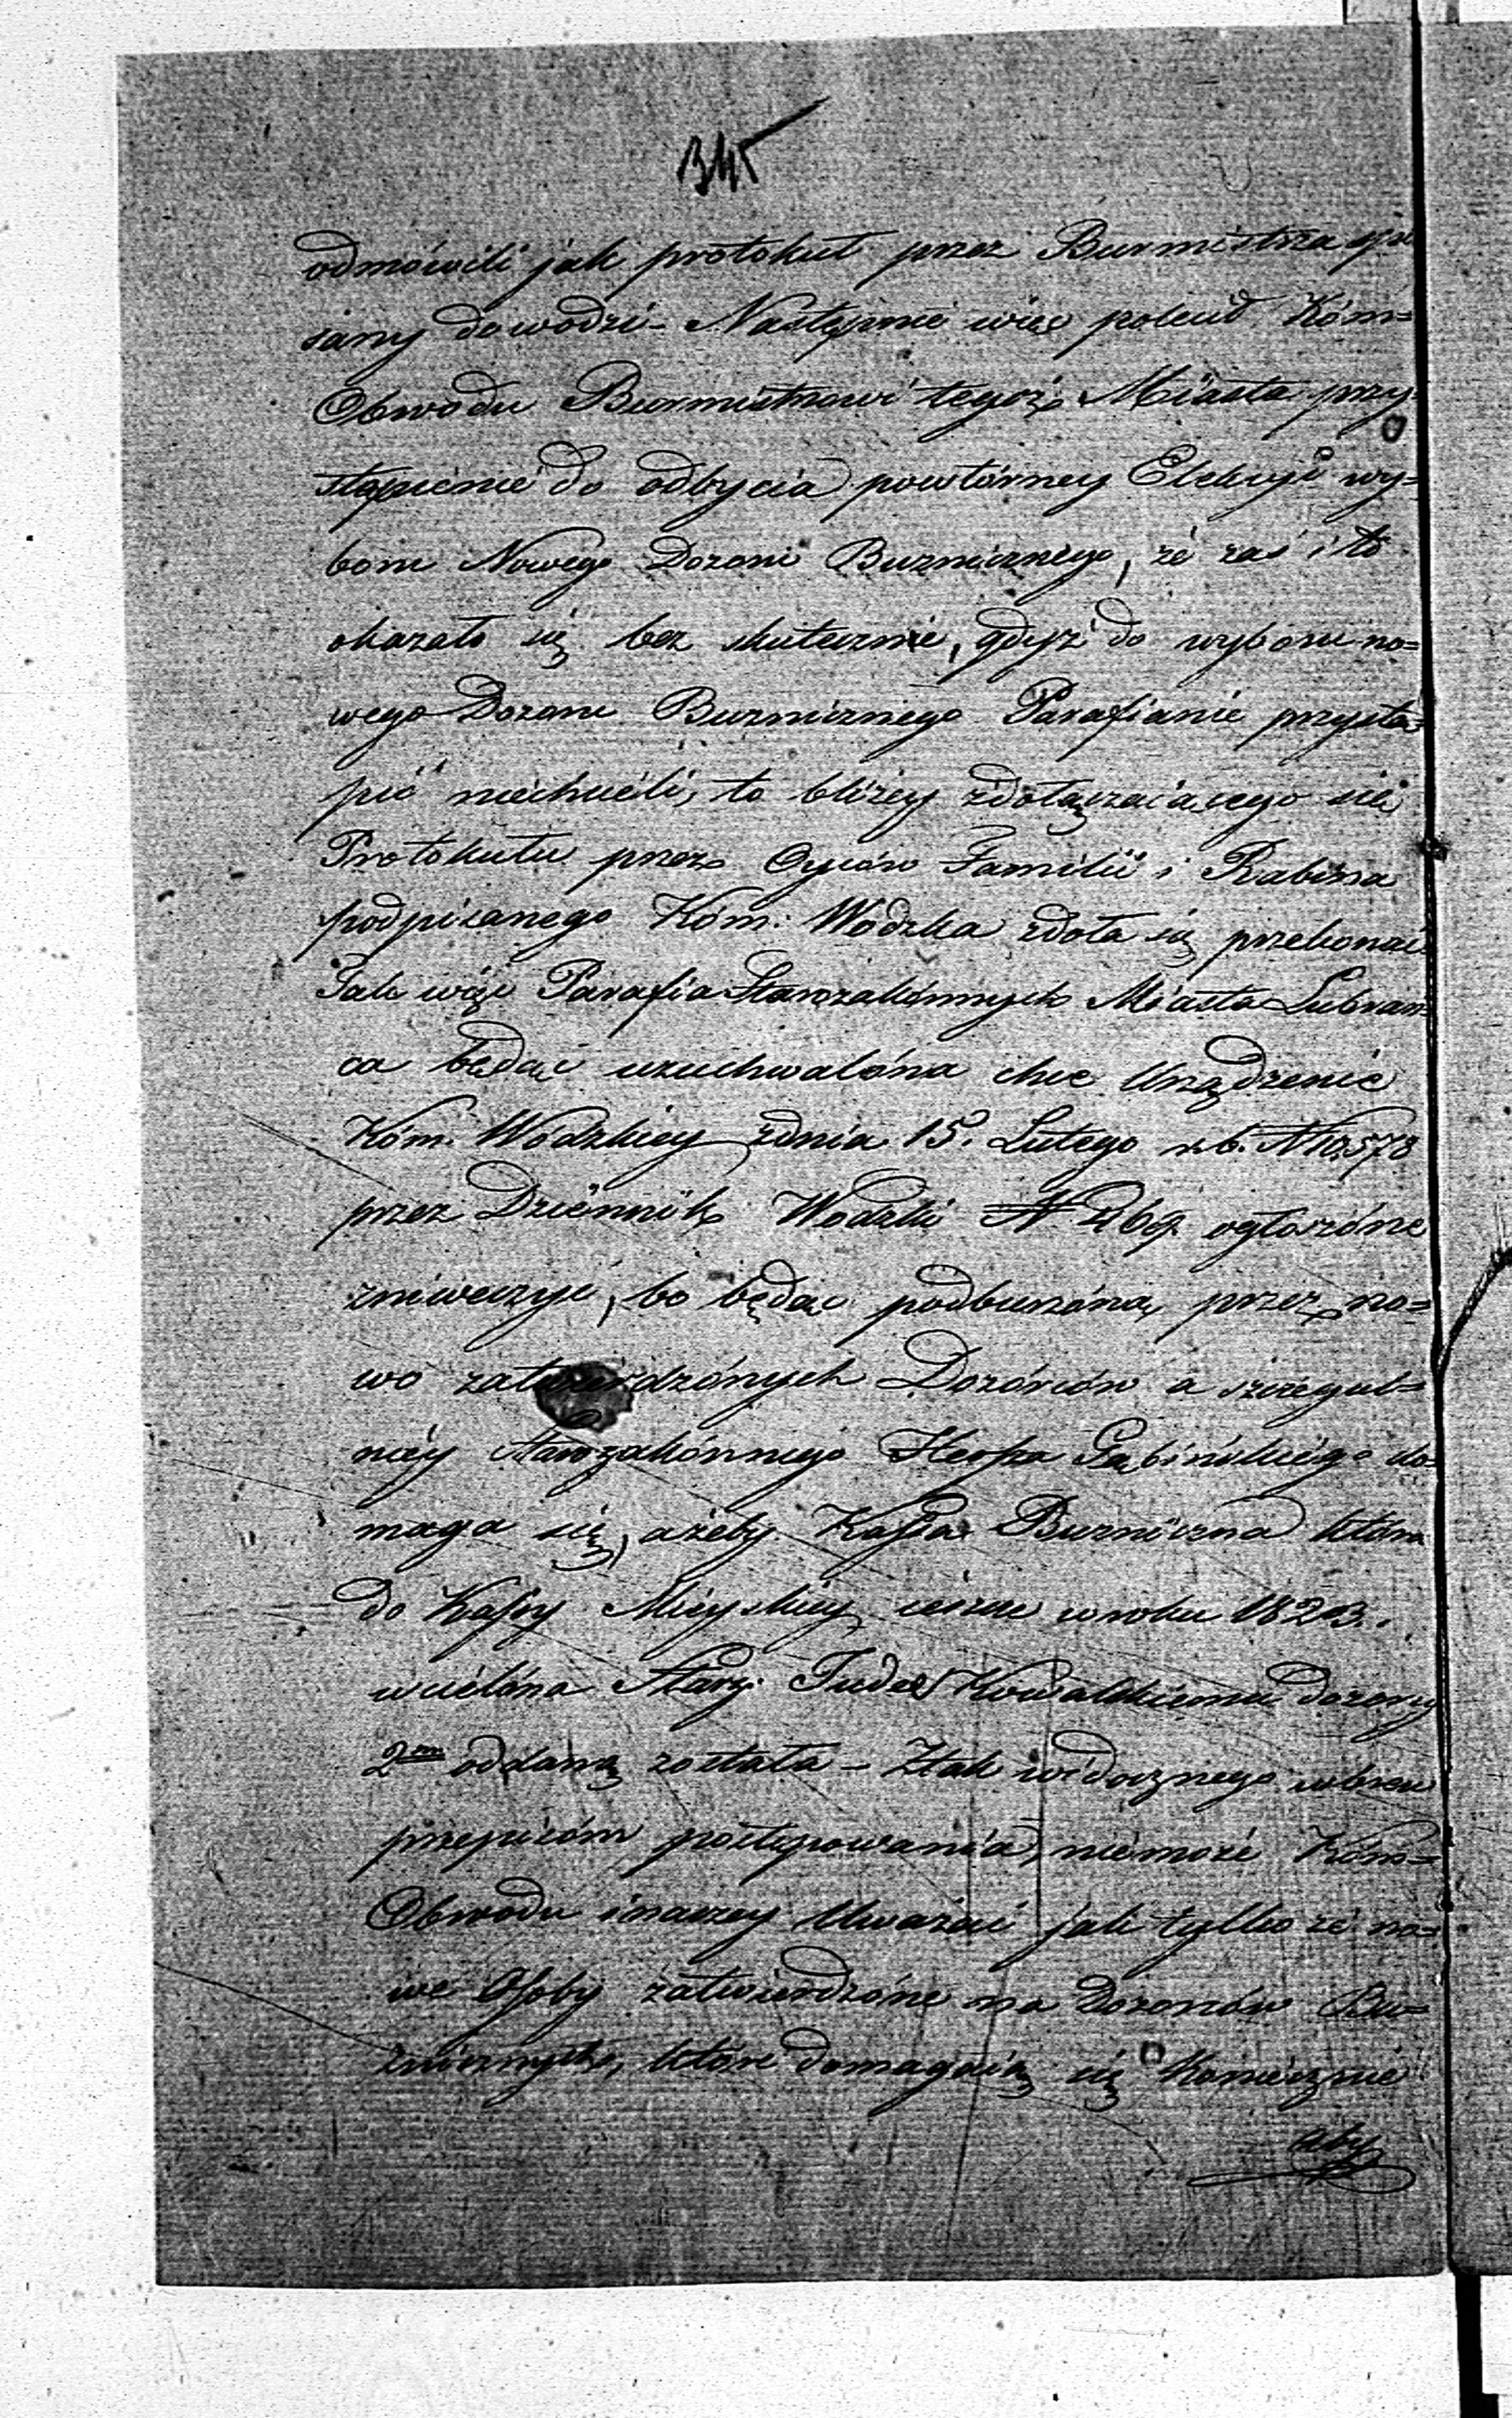 345
odmówili jak protokuł przez Burmistrza spi
sany dowodzi – Następnie więc polecił Kóm=
Obwodu Burmistrzowi tegoż Miasta przy=
stąpienie do odbycia powtórney Elekcyi wy=
boru Nowego Dozoru Buznicznego, że zaś i to
okazało się bez skutecznie, gdyż do wyboru no=
wego Dozoru Buznicznego Parafianie przystą=
pić niechcieli, to bliżey zdołączaiącego się
Protokułu przez Oyców Familii i Rabina
podpisanego Kóm: Wodzka zdoła się przekonać
Tak więc Parafia Starozakónnych Miasta Lubrań=
ca będąc uzuchwalóna chce Urządzenie
Kóm: Wodzkiey zdnia 15. Lutego r. b. N 10,578
przez Dziennik Wodzki N 269 ogłoszóne
zniweczyć, bo będąc podburzóną przez no=
wo zatwierdzónych Dozórców a szczegul=
niey Starozakónnego Herszka Gąbińskiego do=
maga się, ażeby Kassa Buzniczna która
do Kassy Mieyskiey ieszcze w roku 1823.
wcielóna Starz: Judce Kowalskiemu dozorcy
2m oddaną została – Ztak widocznego wbrew
przepisóm postępowania, niemoże Kóm=
Obwodu inaczey Uważać jak tylko że no=
we Osoby zatwierdzóne na Dozorców Bu=
znicznych, które domagaią się Koniecznie
aby